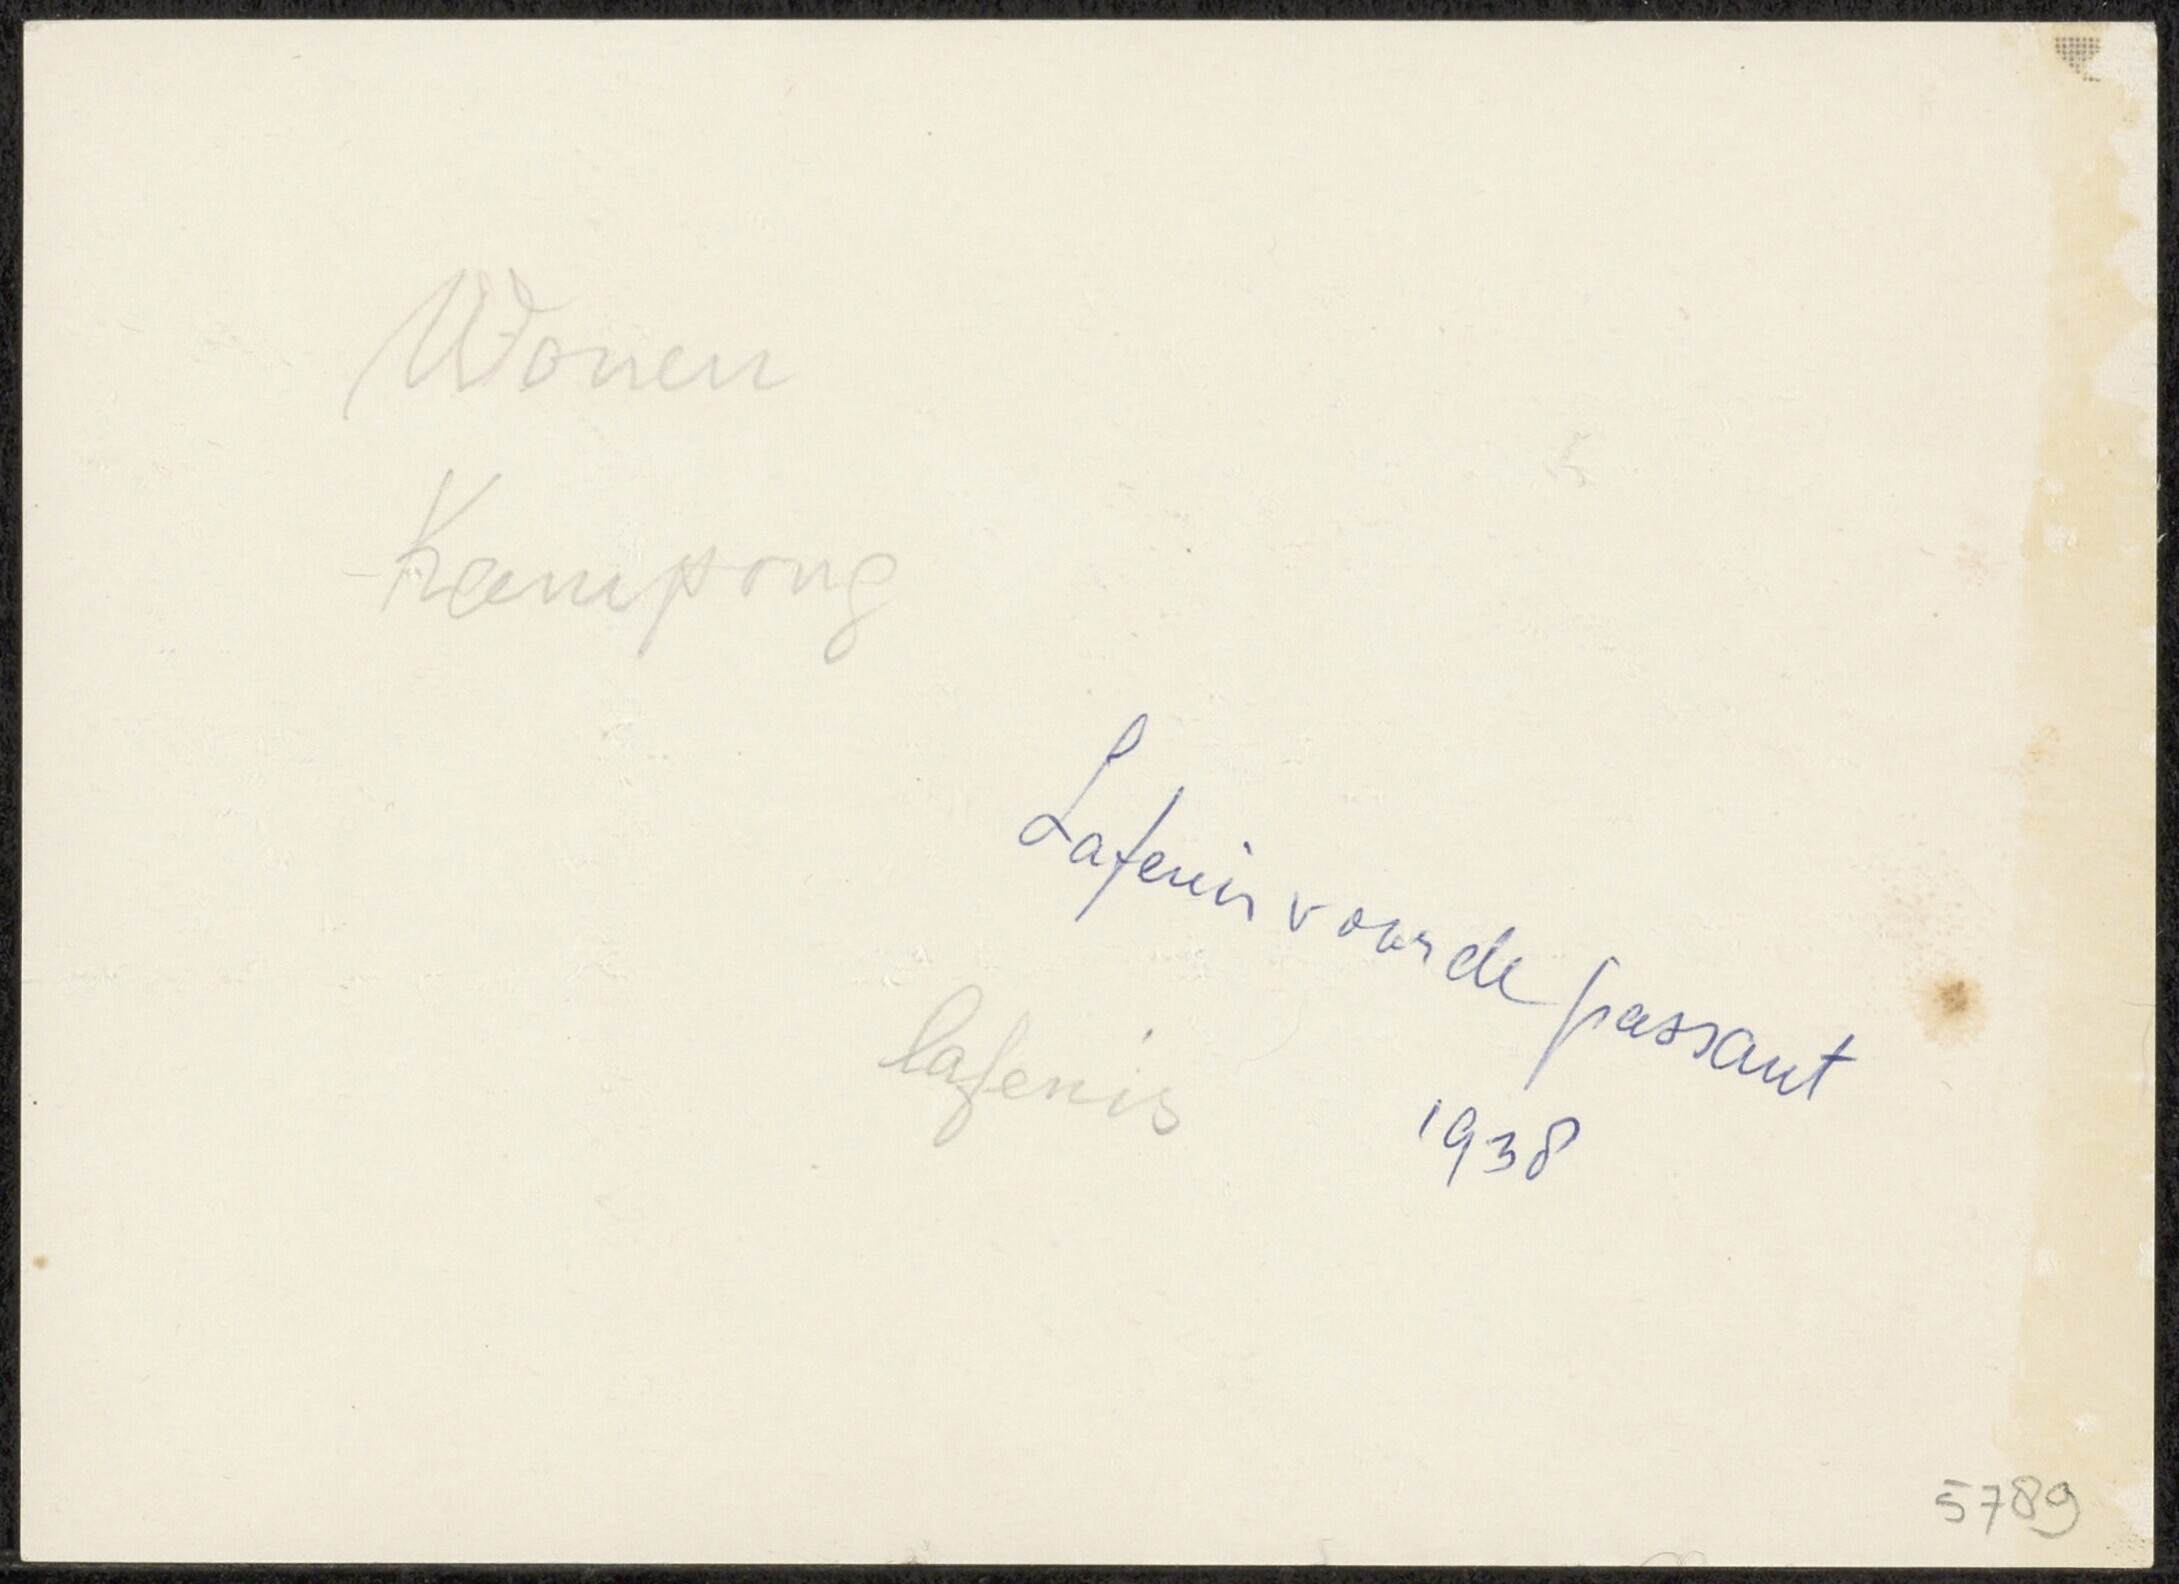 Wonen
Kampong
Lafenis voor de passant
1938
lafenis
5789